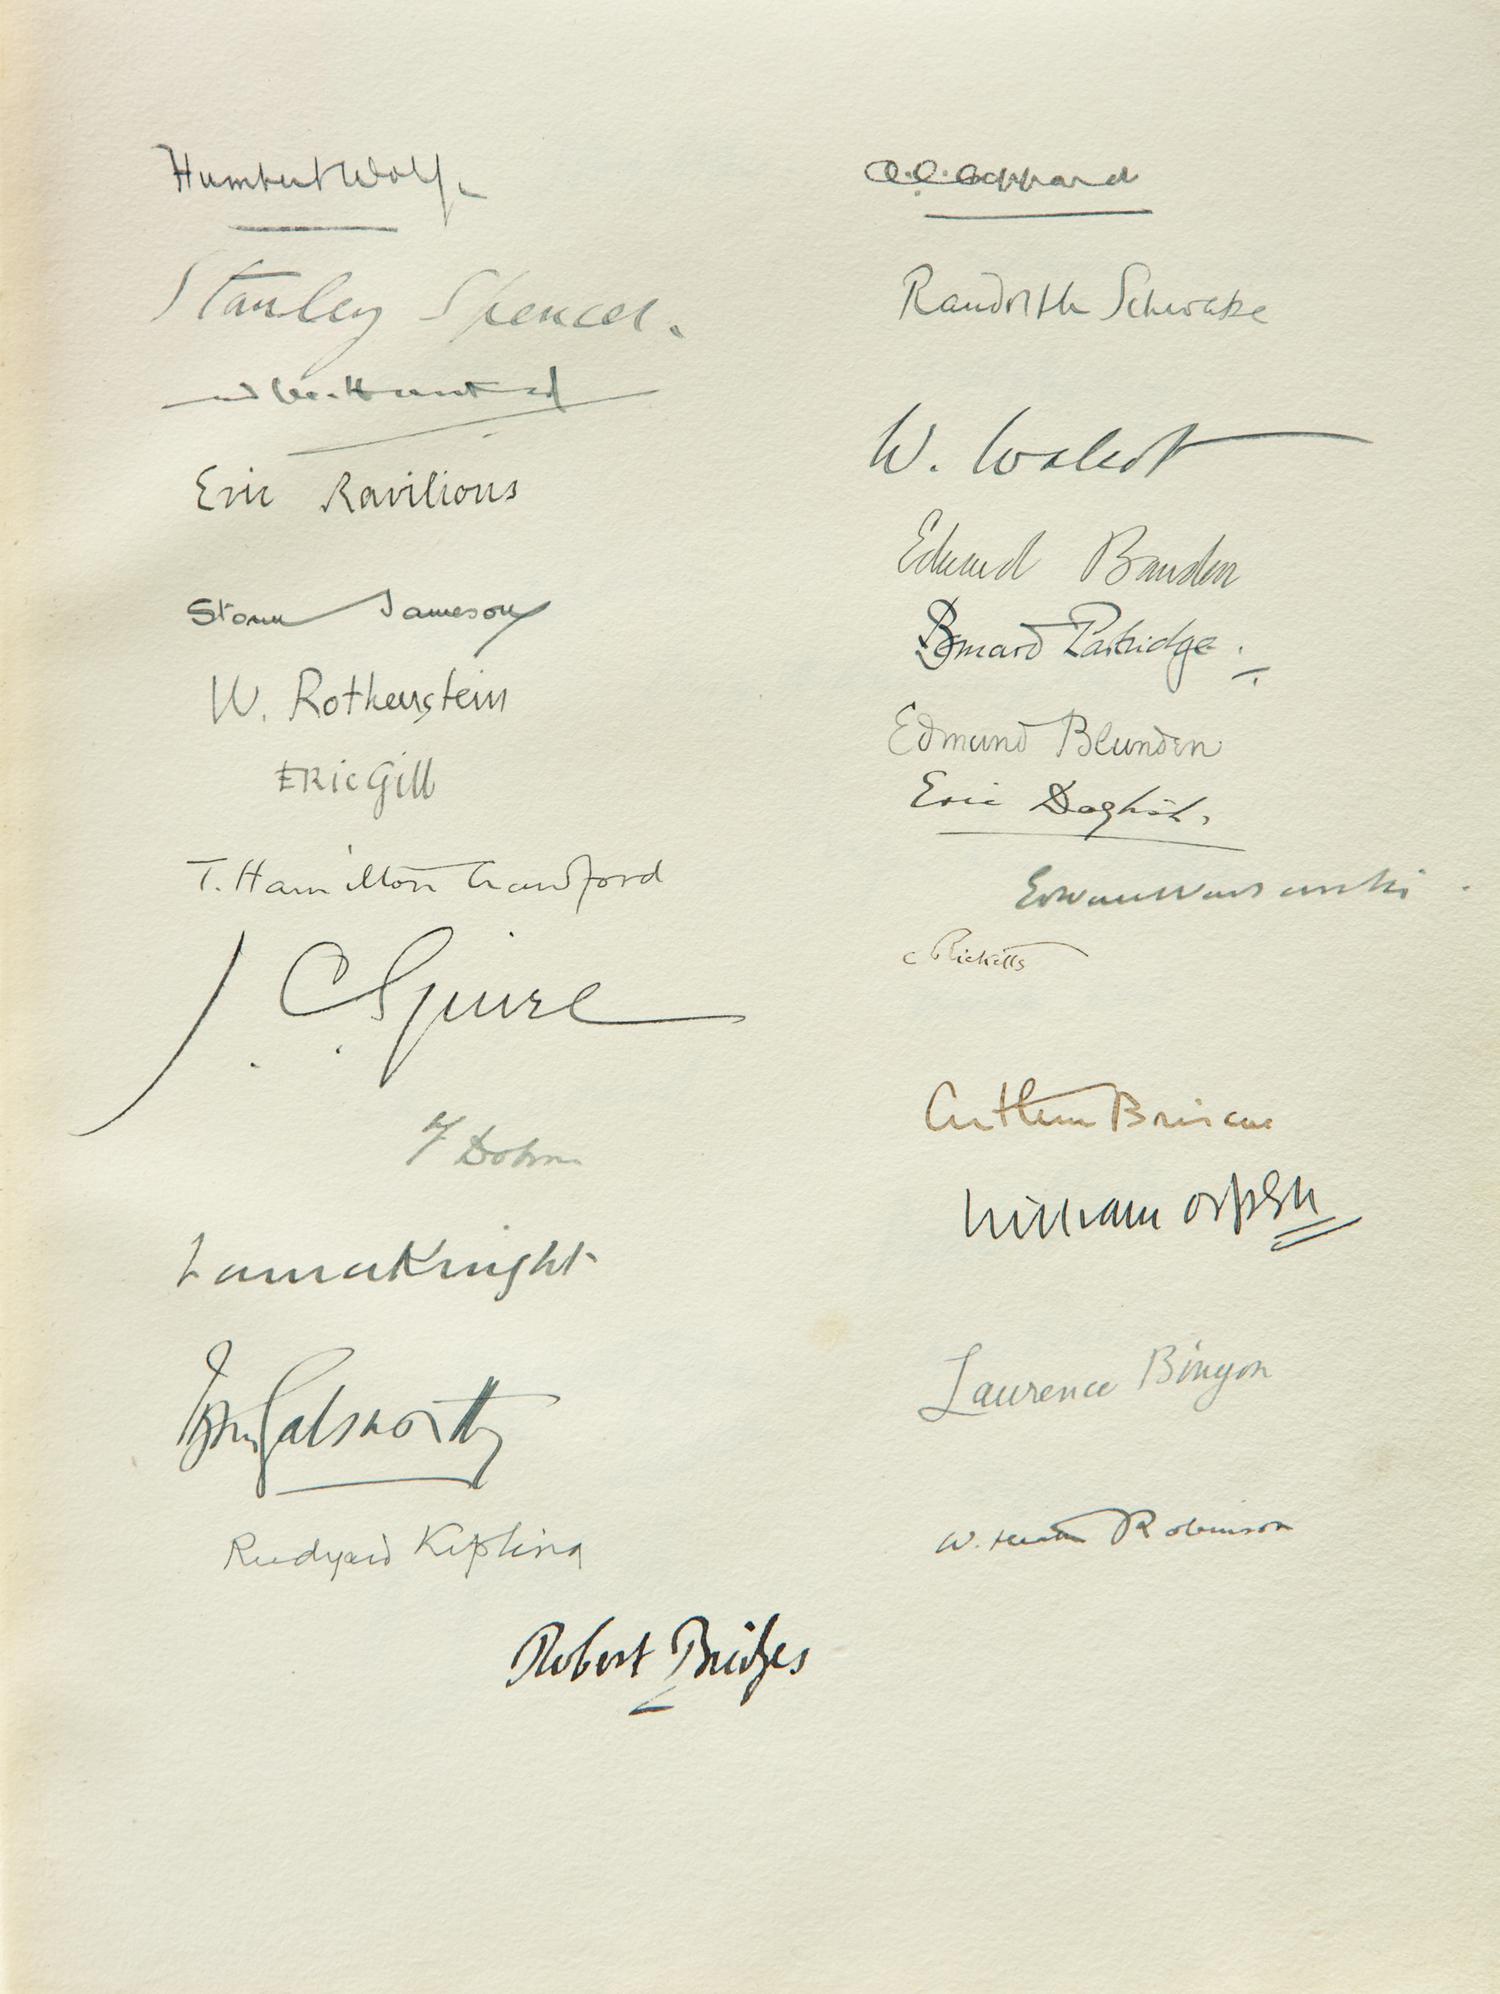 Humbert Wolfe
Stanley Spencer.
Eric Ravilious
Storm Jameson
W. Rothenstein
ERic Gill
T. Hamilton Crawford
J. C. Squire
F Dobson
Laura Knight
John Galsworthy
Rudyard Kipling
A. E. Coppard
Randolph Schwabe
W. Walcot
Edward Bawden
Bernard Partridge.
Edmund Blunden
Eric Daglish.
C Ricketts
Arthur Briscoe
William Orpen
Laurence Binyon
W. Heath Robinson
Robert Bridges